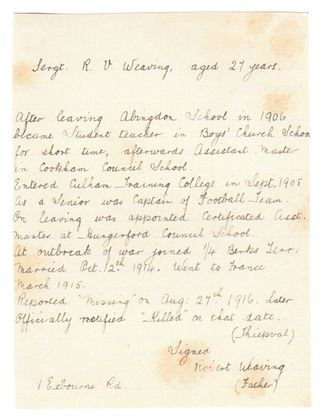 Sergt. R. V. Weaving, aged 27 years.
After leaving Abingdon School in 1906
became Student teacher in Boys' Church School
for short time, afterwards Assistant Master
in Cookham Council School.
Entered Culham Training College in Sept. 1908
As a Senior was Captain of Football Team.
On leaving was appointed Certificated Asst.
Master at Hungerford Council School.
At outbreak of war joined 1/4 Berks Terr:
Married Oct. 12th 1914. Went to France
March 1915.
Reported "Missing" on Aug: 27th 1916. Later
Officially notified "Killed" on that date.
(Thiepval)
Signed
Robert Weaving
(Father)
1 Exbourne Rd.